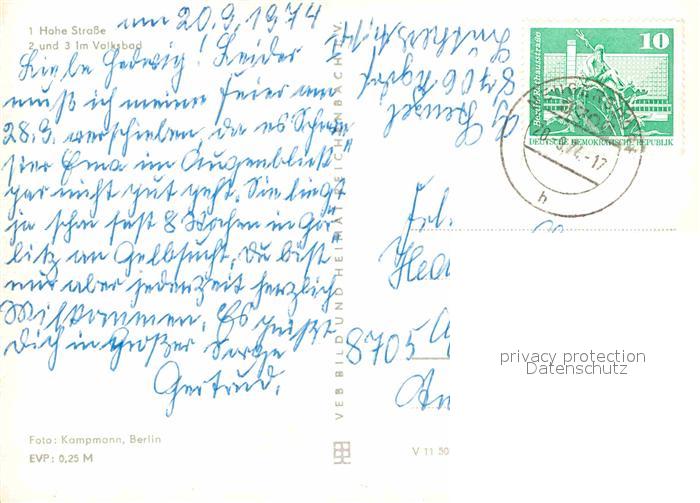 am 20.9.1974
1 Hohe Straße
2 und 3 Im Volksbad
Liebe Hedwig! Leider
muß ich meine Feier am
28.9. verschieben, da es Schwe
ster Erna im Augenblick
gar nicht gut geht. Sie liegt
ja schon fast 8 Wochen in Gör
litz an Gelbsucht. Du bist
nur aber jederzeit herzlich
Willkommen. Es grüßt
Dich in großer Sorge
Gertrud.
Foto: Kampmann, Berlin
EVP: 0,25 M
VEB BILD UND HEIMAT REICHENBACH I. V.
V 11 50
8706
10
Berlin, Rathausstraße
DEUTSCHE DEMOKRATISCHE REPUBLIK
h
8705
privacy protection
Datenschutz